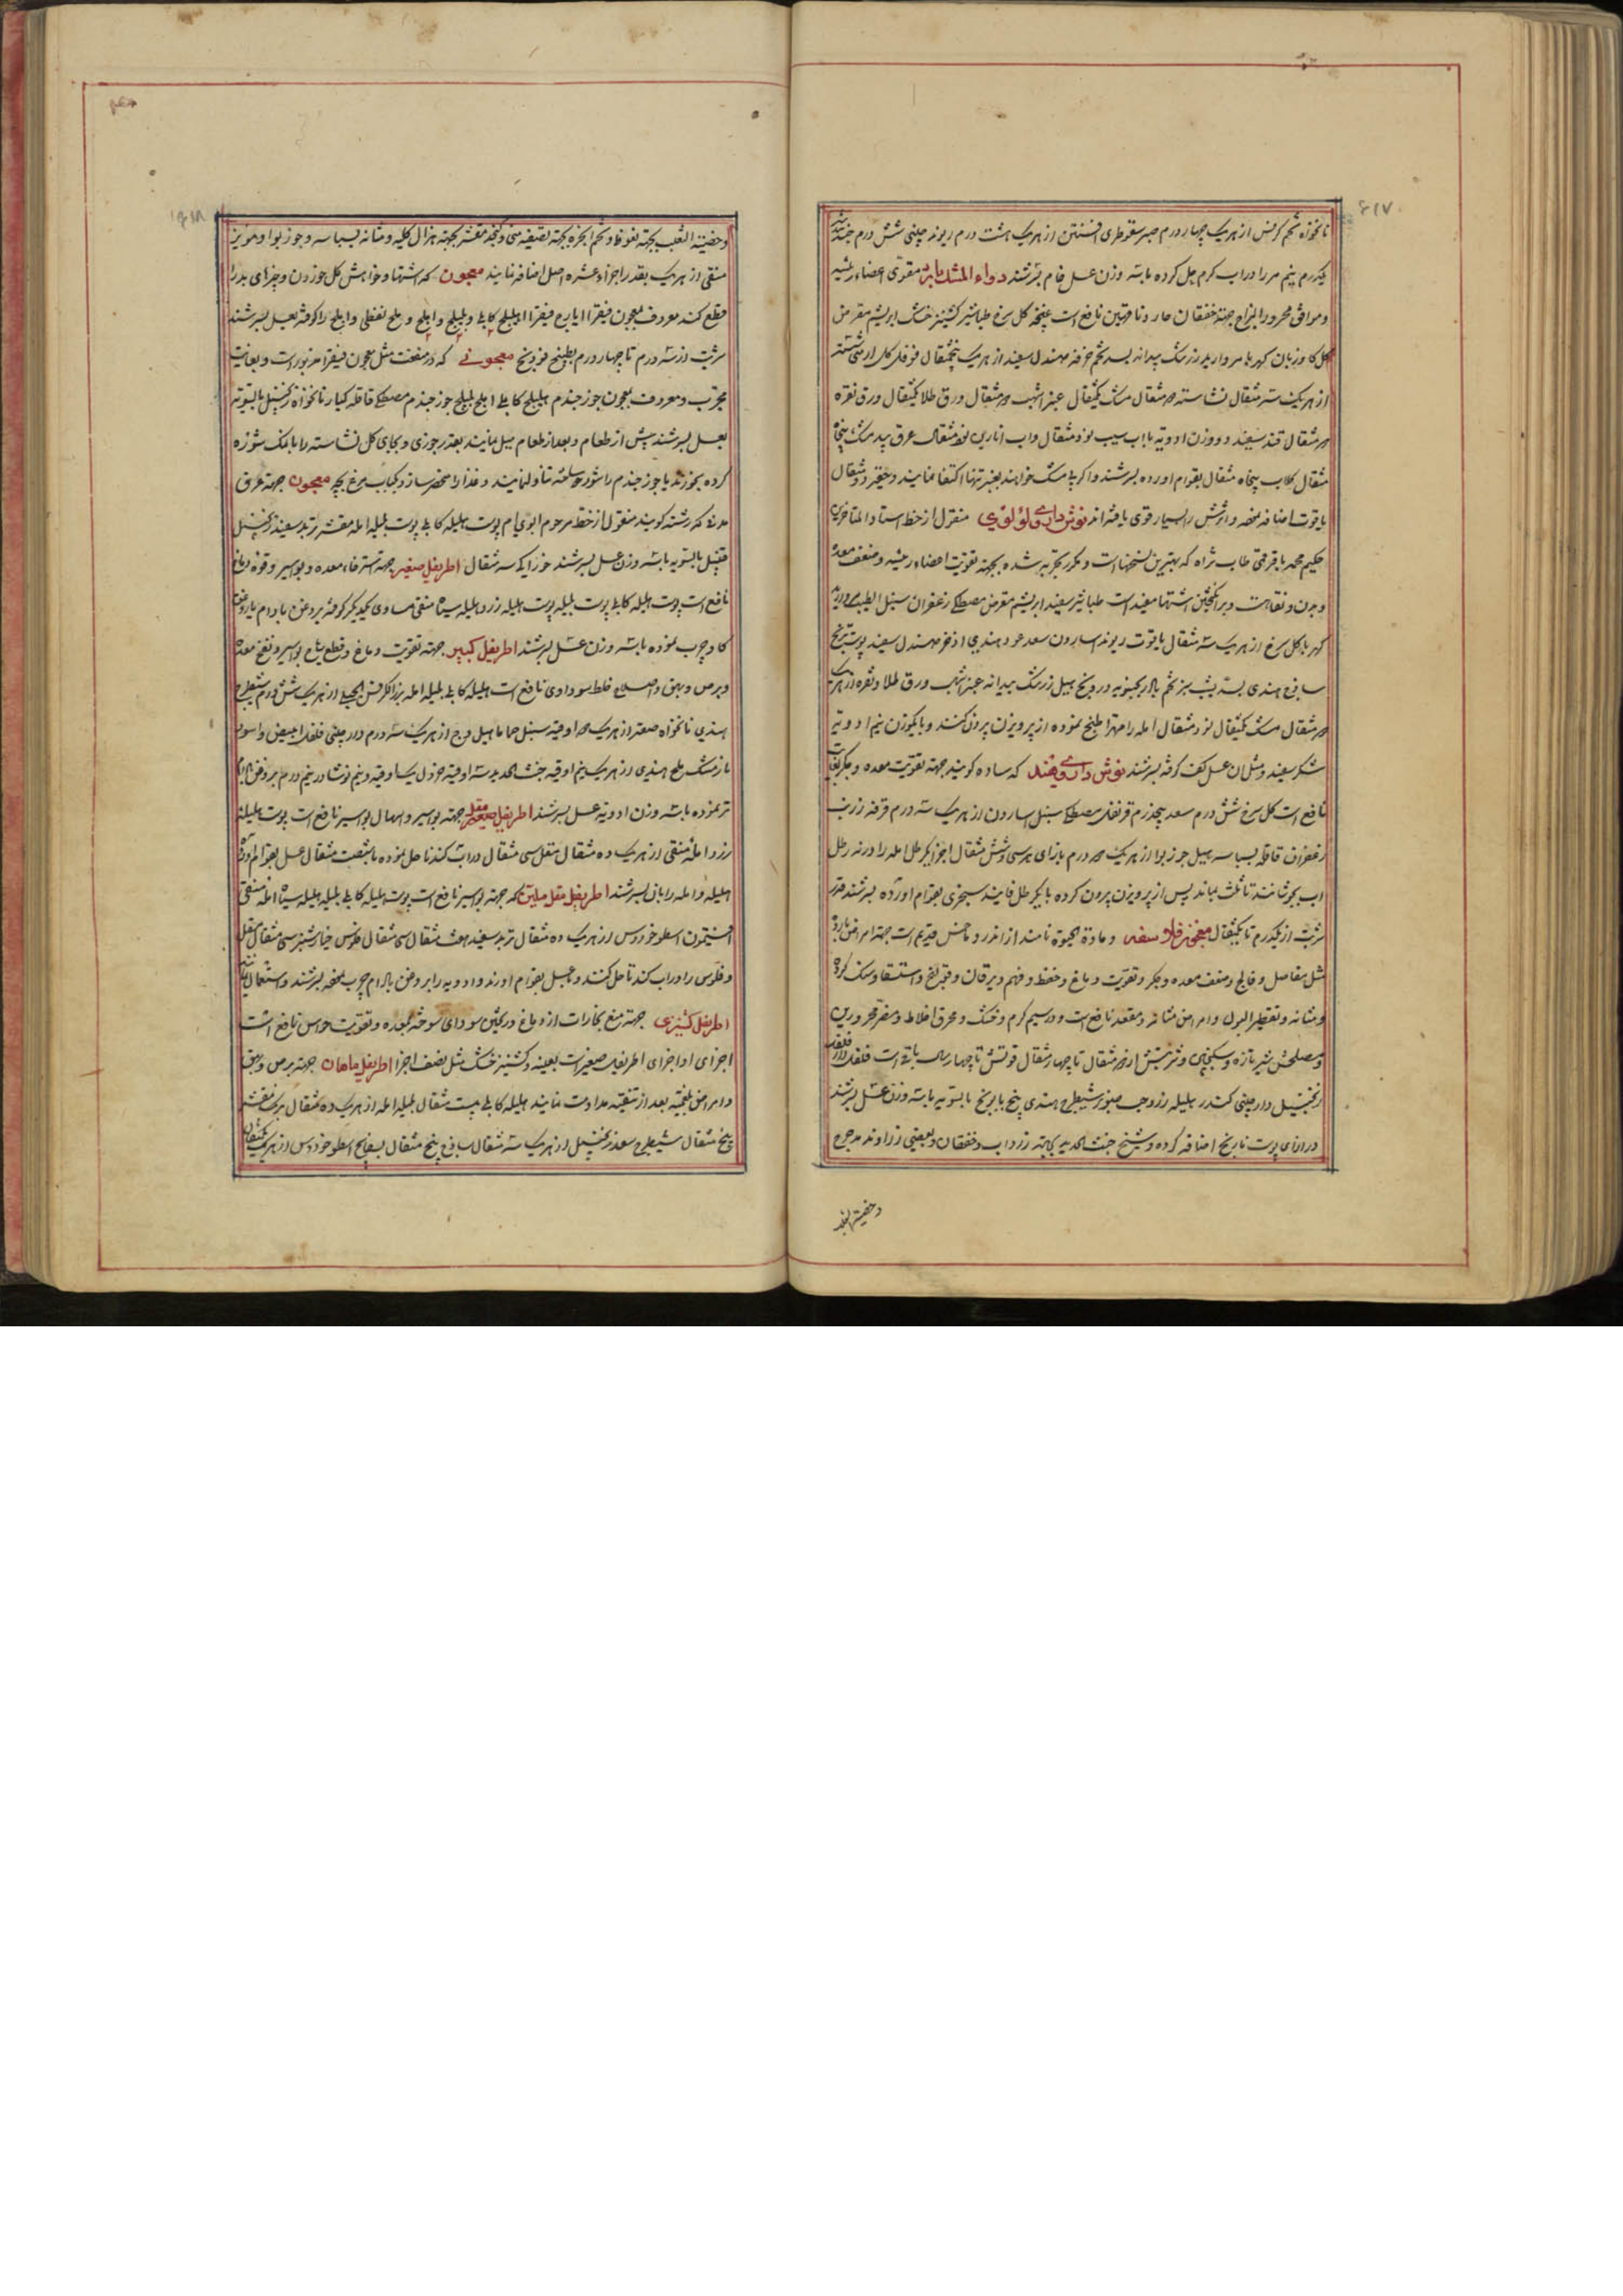 ۶۱۷
نانخواه تخم کرفس از هریک چهار درم صبر سقوطری افسنتین از هریک هشت درم ریوند چینی شش درم
یکدرم نیم مر را در اب کرم حل کرده با سه وزن عسل خام بسرشند دواء المشک بارد مقوی اعضاء رئیسه
و موافق محرور المزاج جهته خفقان حار و ناقهین نافع است غنچه کل سرخ طباشیر کشنیز خشک ابریشم مقرض
کل کاوزبان کهربا مروارید زرشک بیدانه بسد تخم خرفه صندل سفید از هریک پنجمثقال فوفل کل ارمنی شسته
از هریک سه مثقال نشاسته مثقال مشک یکمثقال عنبر اشهب مثقال ورق طلا یکمثقال ورق نقره
مثقال قند سفید دو وزن ادویه با اب سیب نود مثقال و اب انارین نود مثقال عرق بیدمشک پنجاه
مثقال کلاب پنجاه مثقال بقوام اورده بسرشند و اکر بی مشک خواهند بعنبر تنها اکتفا نمایند و حقیر دو مثقال
یاقوت اضافه نموده و اثرش را بسیار قوی یافته اند نوش داروی لؤلؤی منقول از خط استاد المتاخرین
حکیم محمد باقر قمی طاب ثراه که بهترین نسخها است و مکرر بتجربه رسیده بجهته تقویت اعضاء رئیسه و ضعف معده
و بدن و نقاهت و برانکیختن اشتها مفید است طباشیر سفید ابریشم مقرض مصطکی زعفران سنبل الطیب
کهربا کل سرخ از هریک سه مثقال یاقوت ریوند اسارون سعد عود هندی اذخر صندل سفید پوست ترنج
ساذج هندی بسد یشب سبز تخم بادرنجبویه درونج هیل زرشک بیدانه عنبر اشهب ورق طلا و نقره از هریک
مثقال مشک یکمثقال نود مثقال امله را مهرا طبخ نموده از پرویزن بیرون کنند و با یکوزن نیم ادویه
شکر سفید و مثل ان عسل کف کرفته بسرشند نوش داروی قند که ساده کویند جهته تقویت معده و جکر بغایت
نافع است کل سرخ شش درم سعد پنجدرم قرنفل مصطکی سنبل اسارون از هریک سه درم قرفه زرنب
زعفران قاقله بسباسه هیل جوزبوا از هریک درم بازای هر سی و شش مثقال اجزا یکرطل امله را در نه رطل
اب بجوشانند تا ثلث بماند پس از پرویزن بیرون کرده با یکرطل فانید سنجری بقوام اورده بسرشند قدر
شربت از یکدرم تا یکمثقال معجون فلاسفه و مادة الحیوة نامند از اندروماخس قدیم است جهته امراض بارده
مثل مفاصل و فالج و ضعف معده و جکر و تقویت دماغ و حفظ و فهم و یرقان و قولنج و استسقا و سنک کرده
و مثانه و تقطیر البول و امراض مثانه و مقعد نافع است و در سیم کرم و خشک و محرق اخلاط و مضر محرورین
و مصلحش شیر تازه و سکنجبین و شربتش از مثقال تا چهار مثقال قوتش تا چهار سال باقی است فلفل دارفلفل
زنجبیل دارچینی کندر بلیله زرد حب صنوبر شیطرج هندی بیخ بابونج بالسویه با سه وزن عسل بسرشند
در ازای پوست نارنج اضافه کرده و شیخ خبث الحدید بجهته زرداب و خفقان و بعضی زراوند مدحرج
و خصیة الثعلب
۶۱۸
و خصیة الثعلب بجهته نعوظ و تخم انجره بجهته تصفیه منی و کنجد مقشر بجهته هزال کلیه و مثانه بسباسه و جوزبوا و مویز
منقی از هریک بقدر اجزاء عشره اصل اضافه نمایند معجون که اشتها و خواهش کل خوردن و چیزهای بد را
قطع کند معروف بمعجون فیقرا ایارج فیقرا هلیلج کابلی و بلیلج و املج و ملح نفطی و املج را کوفته بعسل بسرشند
شربت از سه درم تا چهار درم بطبیخ فوذنج معجونی که در منفعت مثل معجون فیقرا مزبور است و بغایت
مجرب و معروف بمعجون جوزجندم هلیلج کابلی املج بلیلج جوزجندم مصطکی قاقله کبار نانخواه زنجبیل بالسویه
بعسل بسرشند پیش از طعام و بعد از طعام میل نمایند بقدر جوزی و بجای کل نشاسته را با نمک شوره
کرده بخورند یا جوزجندم را شور ساخته تناول نمایند و غذا را منحصر سازد بکباب مرغ بچه معجون جهته عرق
مدنی که رشته کویند منقول از خط مرحوم ابوی ام پوست هلیله کابلی پوست بلیله امله مقشر تربد سفید زنجبیل
قنبیل بالسویه با سه وزن عسل بسرشند خوراک سه مثقال اطریفل صغیر جهته استرخاء معده و بواسیر و قوه دماغ
نافع است پوست هلیله کابلی پوست بلیله پوست هلیله زرد هلیله سیاه منقی مساوی یکدیکر کوفته بروغن بادام یا روغن
کاو چرب نموده با سه وزن عسل بسرشند اطریفل کبیر جهته تقویت دماغ و قطع ریاح بواسیر و نفخ معده
و برص و بهق و اصلاح خلط سوداوی نافع است هلیله کابلی بلیله امله بزر الکرفس الجبلی از هریک شش درم شیطرج
هندی نانخواه صعتر از هریک اوقیه سنبل حاما هیل وج از هریک سه درم دارچینی فلفل ابیض و اسود
نارمشک ملح هندی از هریک نیم اوقیه خبث الحدید سه اوقیه خردل یک اوقیه و نیم نوشادر نیم درم بروغن بادام
تر نموده با سه وزن ادویه عسل بسرشند اطریفل صغیر مقل جهته بواسیر و اسهال بواسیر نافع است پوست هلیله
زرد امله منقی از هریک ده مثقال مقل سی مثقال در اب کندنا حل نموده با شصت مثقال عسل بقوام اورند
هلیله و امله را بان بسرشند اطریفل مقل ملین که جهته بواسیر نافع است پوست هلیله کابلی بلیله هلیله سیاه امله منقی
افتیمون اسطوخودوس از هریک ده مثقال تربد سفید هشت مثقال سی مثقال فلوس خیارشنبر سی مثقال مقل
و فلوس را در اب کندنا حل کنند و با عسل بقوام اورند و ادویه را بروغن بادام چرب نموده بسرشند و استعمال نمایند
اطریفل کشنیزی جهته منع بخارات از دماغ و ریختن سودای سوخته بمعده و تقویت حواس نافع است
اجزای او اجزای اطریفل صغیر است بعینه و کشنیز خشک مثل نصف اجزا اطریفل ماهان جهته برص و بهق
و امراض بلغمیه بعد از تنقیه مداومت نمایند هلیله کابلی بیست مثقال بلیله امله از هریک ده مثقال برنک مقشر
پنج مثقال شیطرج سعد زنجبیل از هریک سه مثقال ساذج پنج مثقال بسفایج اسطوخودوس از هریک